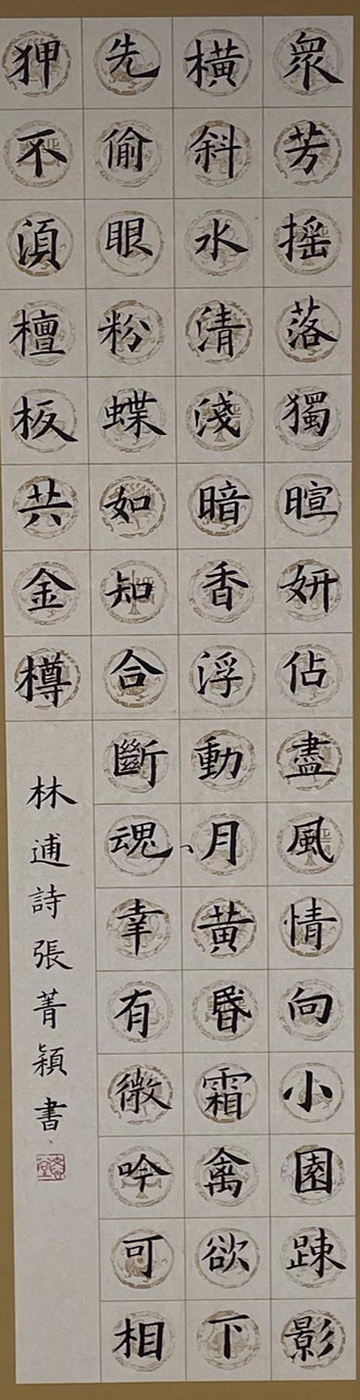 眾芳搖落獨暄妍佔盡風情向小園踈影
橫斜水清淺暗香浮動月黃昏霜禽欲下
先偷眼粉蝶如知合斷魂幸有微吟可相
狎不須檀板共金樽
林逋詩張菁穎書